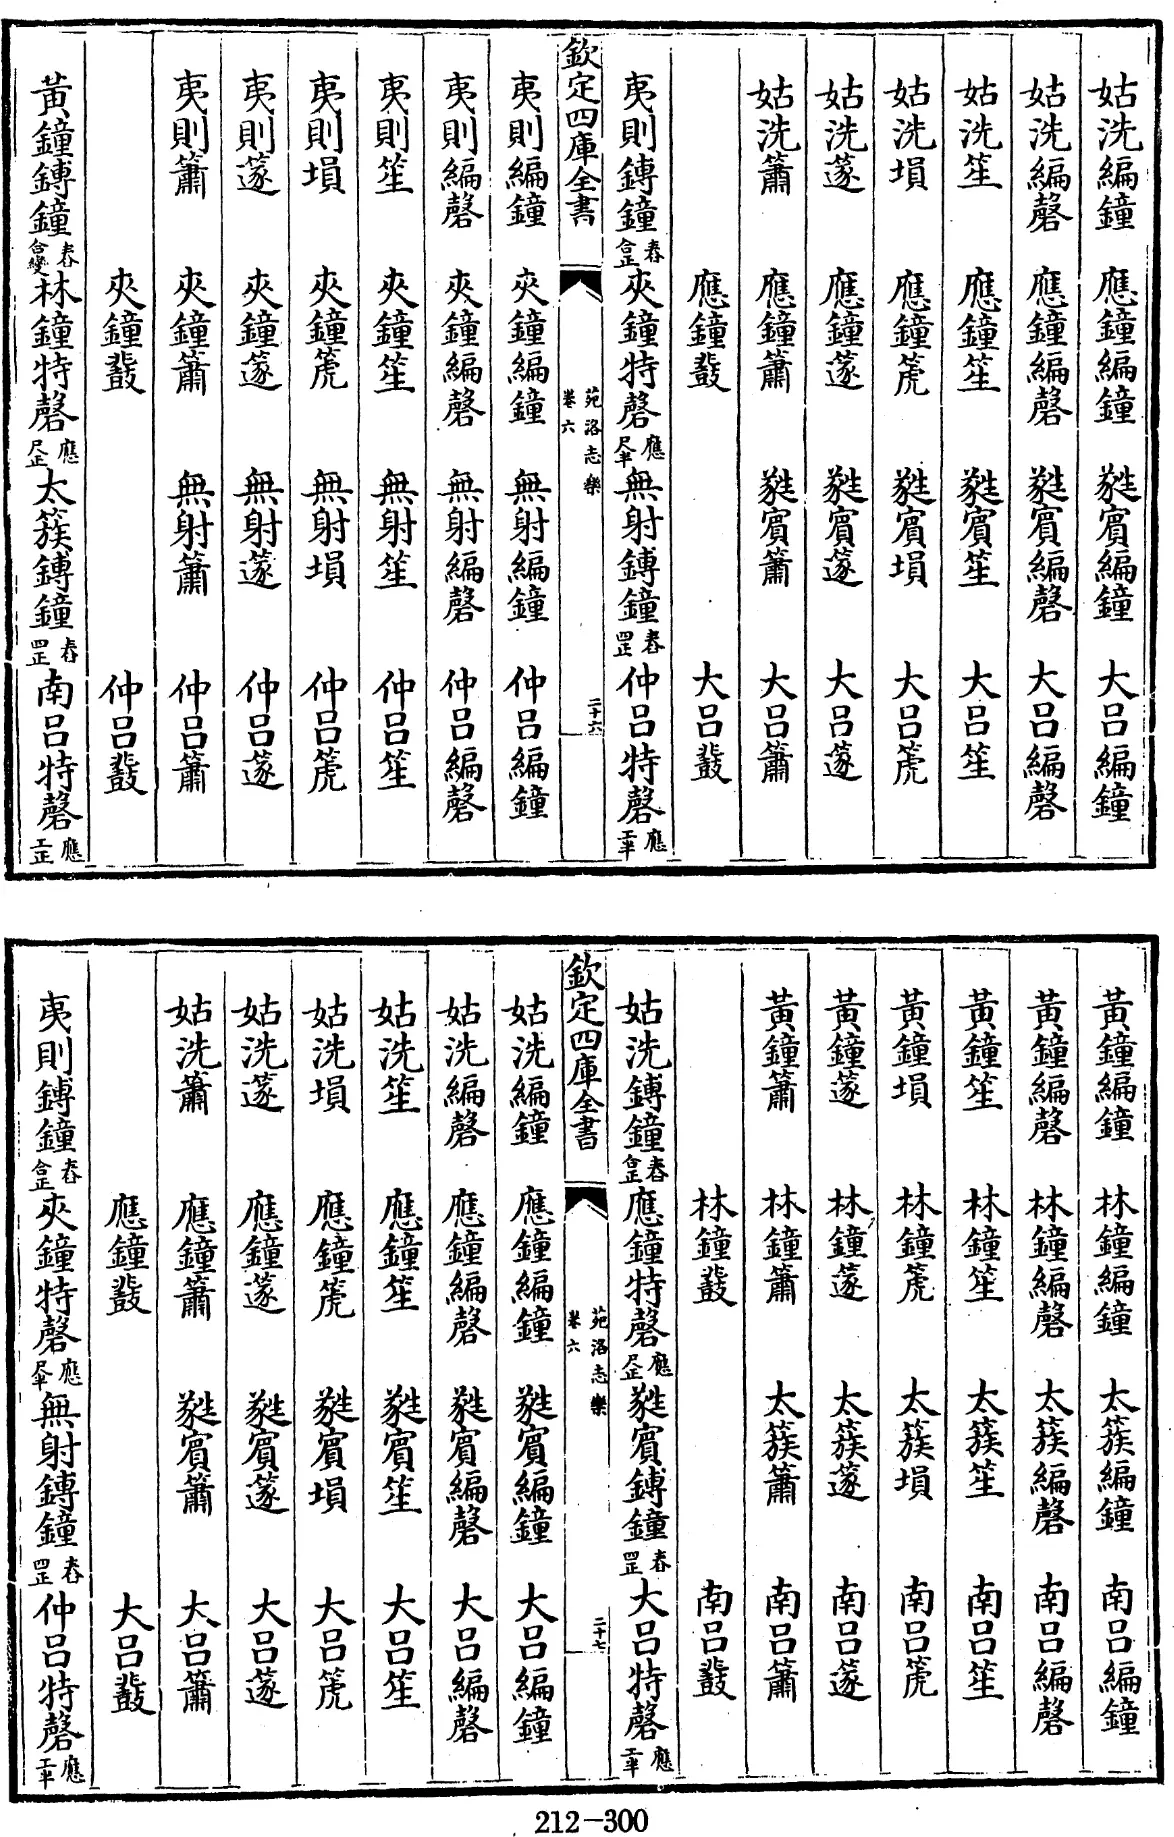 姑洗編鐘 應鐘編鐘 蕤賓編鐘 大吕編鐘
姑洗編磬 應鐘編磬 蕤賓編磬 大吕編磬
姑洗笙 應鐘笙 蕤賓笙 大吕笙
姑洗塤 應鐘箎 蕤賓塤 大吕箎
姑洗篴 應鐘篴 蕤賓篴 大吕篴
姑洗簫 應鐘簫 蕤賓簫 大吕簫
應鐘鼗 大吕鼗
夷則鎛鐘舂合正夾鐘特磬應尺半無射鎛鐘舂四正仲吕特磬應工半
欽定四庫全書 苑洛志樂 卷六 二十六
夷則編鐘 夾鐘編鐘 無射編鐘 仲吕編鐘
夷則編磬 夾鐘編磬 無射編磬 仲吕編磬
夷則笙 夾鐘笙 無射笙 仲吕笙
夷則塤 夾鐘箎 無射塤 仲吕箎
夷則篴 夾鐘篴 無射篴 仲吕篴
夷則簫 夾鐘簫 無射簫 仲吕簫
夾鐘鼗 仲吕鼗
黃鐘鎛鐘舂合變林鐘特磬應尺正太簇鎛鐘舂四正南吕特磬應工正
黃鐘編鐘 林鐘編鐘 太簇編鐘 南吕編鐘
黃鐘編磬 林鐘編磬 太簇編磬 南吕編磬
黃鐘笙 林鐘笙 太簇笙 南吕笙
黃鐘塤 林鐘箎 太簇塤 南吕箎
黃鐘篴 林鐘篴 太簇篴 南吕篴
黃鐘簫 林鐘簫 太簇簫 南吕簫
林鐘鼗 南吕鼗
姑洗鎛鐘舂合正應鐘特磬應尺正蕤賓鎛鐘舂四正大吕特磬應工半
欽定四庫全書 苑洛志樂 卷六 二十七
姑洗編鐘 應鐘編鐘 蕤賓編鐘 大吕編鐘
姑洗編磬 應鐘編磬 蕤賓編磬 大吕編磬
姑洗笙 應鐘笙 蕤賓笙 大吕笙
姑洗塤 應鐘箎 蕤賓塤 大吕箎
姑洗篴 應鐘篴 蕤賓篴 大吕篴
姑洗簫 應鐘簫 蕤賓簫 大吕簫
應鐘鼗 大吕鼗
夷則鎛鐘舂合正夾鐘特磬應尺半無射鎛鐘舂四正仲吕特磬應工半
212-300